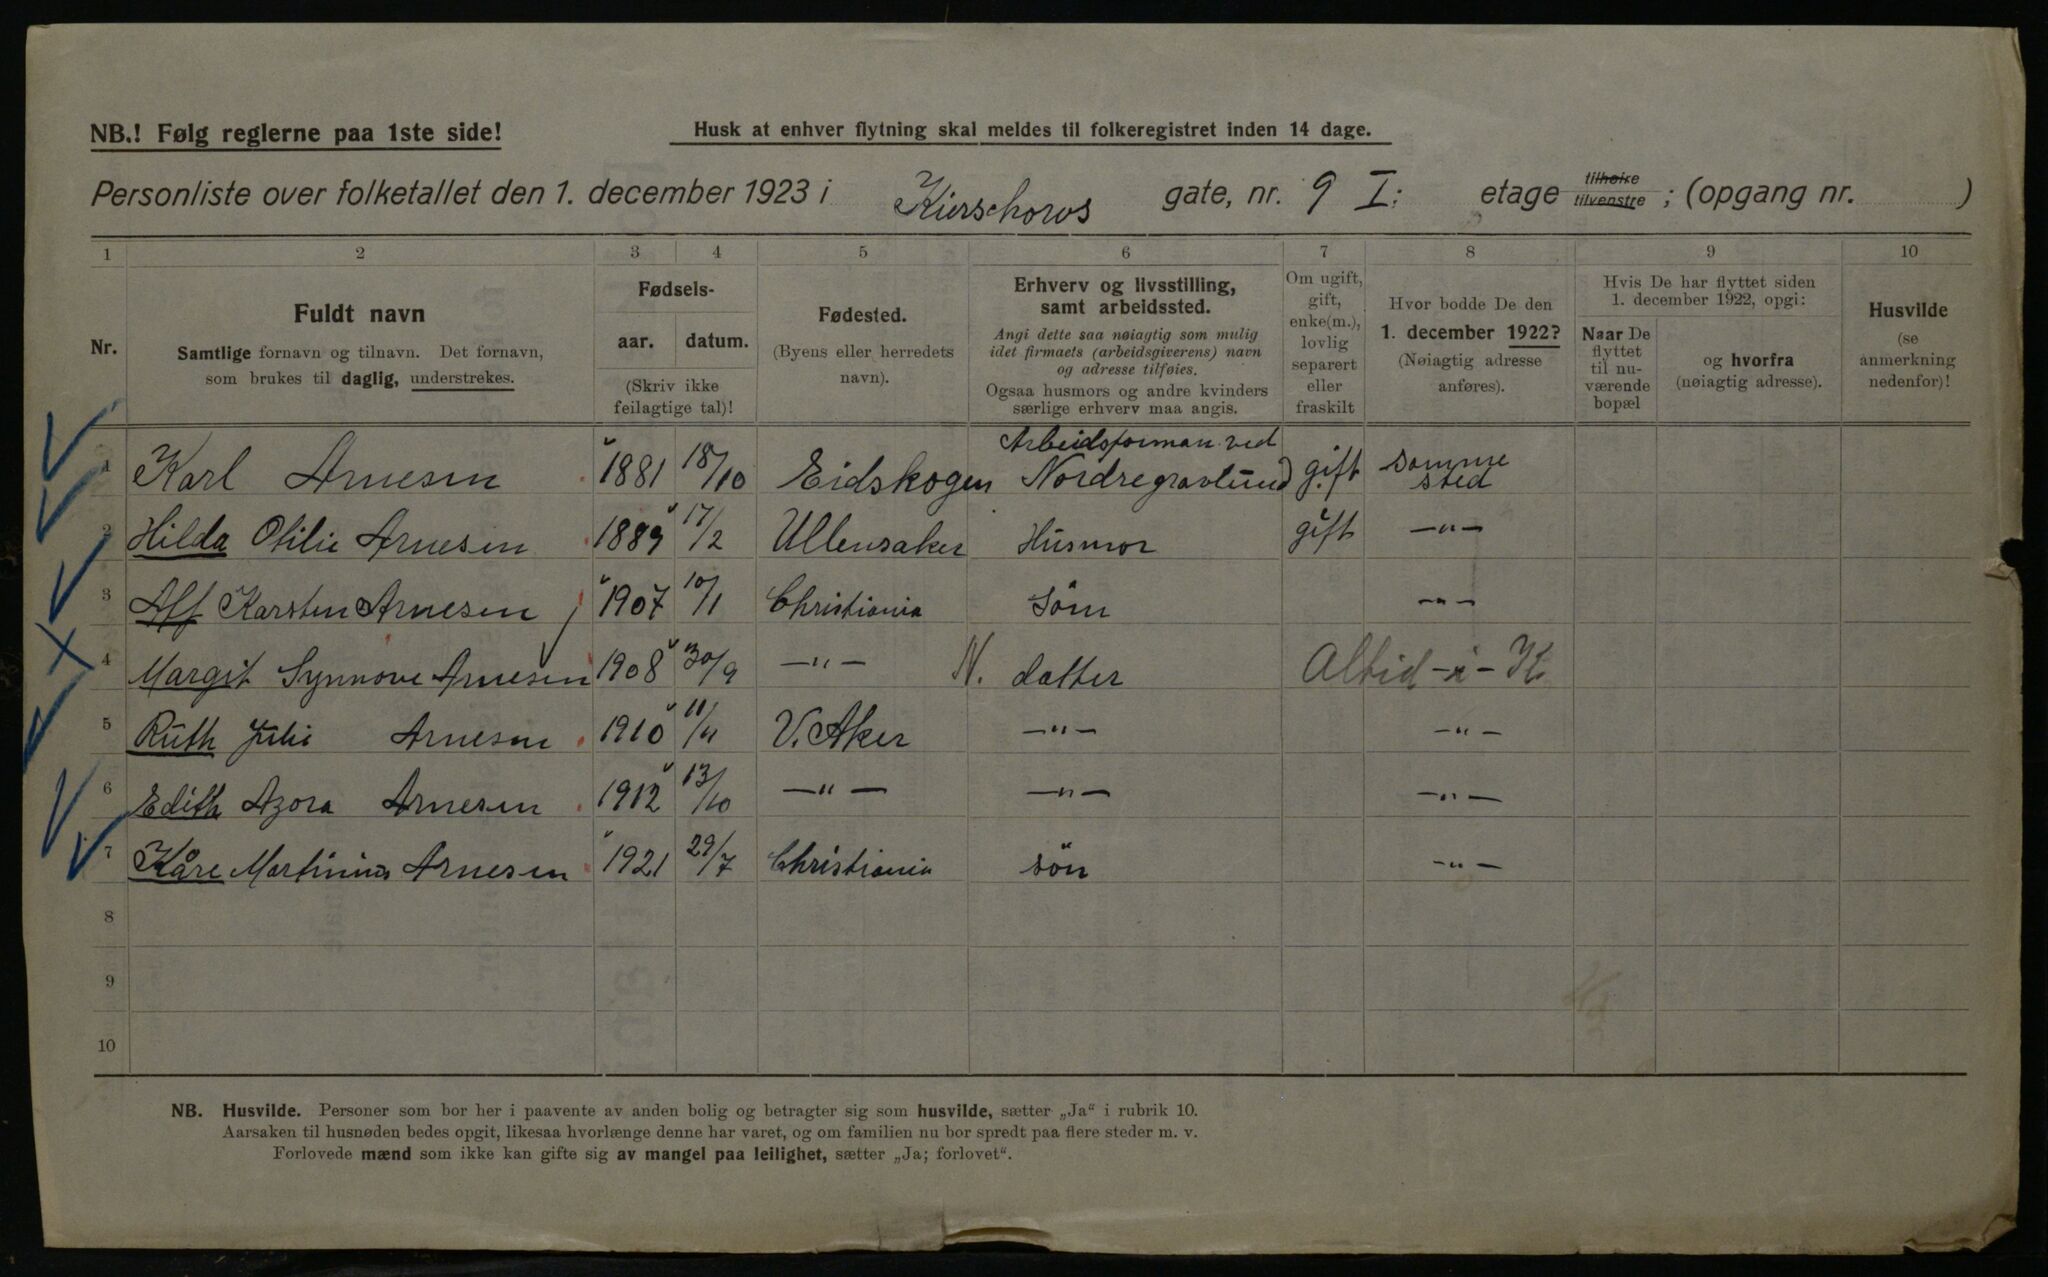 NB.! Følg reglerne paa 1ste side!
Husk at enhver flytning skal meldes til folkeregistret inden 14 dage.
Personliste over folketallet den 1. december 1923 i Kierschows gate, nr. 9 I: etage tilhøire tilvenstre ; (opgang nr. )
1 2 3 4 5 6 7 8 9 10
Nr.
Fuldt navn
Samtlige fornavn og tilnavn. Det fornavn,
som brukes til daglig, understrekes.
Fødsels-
aar. datum.
(Skriv ikke
feilagtige tal)!
Fødested.
(Byens eller herredets
navn).
Erhverv og livsstilling,
samt arbeidssted.
Angi dette saa nøiagtig som mulig
idet firmaets (arbeidsgiverens) navn
og adresse tilføies.
Ogsaa husmors og andre kvinders
særlige erhverv maa angis.
Om ugift,
gift,
enke(m.),
lovlig
separert
eller
fraskilt
Hvor bodde De den
1. december 1922?
(Nøiagtig adresse
anføres).
Hvis De har flyttet siden
1. december 1922, opgi:
Naar De
flyttet
til nu-
værende
bopæl
og hvorfra
(nøiagtig adresse).
Husvilde
(se
anmerkning
nedenfor)!
Arbeidsforman ved
1 Karl Arnesen 1881 18/10 Eidskogen Nordregravlund gift samme sted
2 Hilda Otilie Arnesen 1889 17/2 Ullensaker Husmor gift —"—
3 Alf Karsten Arnesen 1907 10/1 Christiania sön —"—
4 Margit Synnove Arnesen 1908 30/9 —"— N. datter Altid -i- K.
5 Ruth Julie Arnesen 1910 11/11 V. Aker —"— —"—
6 Edith Azora Arnesen 1912 13/10 —"— —"— —"—
7 Kåre Martinius Arnesen 1921 29/7 Christiania sön —"—
8
9
10
NB. Husvilde. Personer som bor her i paavente av anden bolig og betragter sig som husvilde, sætter „Ja“ i rubrik 10.
Aarsaken til husnøden bedes opgit, likesaa hvorlænge denne har varet, og om familien nu bor spredt paa flere steder m. v.
Forlovede mænd som ikke kan gifte sig av mangel paa leilighet, sætter „Ja; forlovet“.